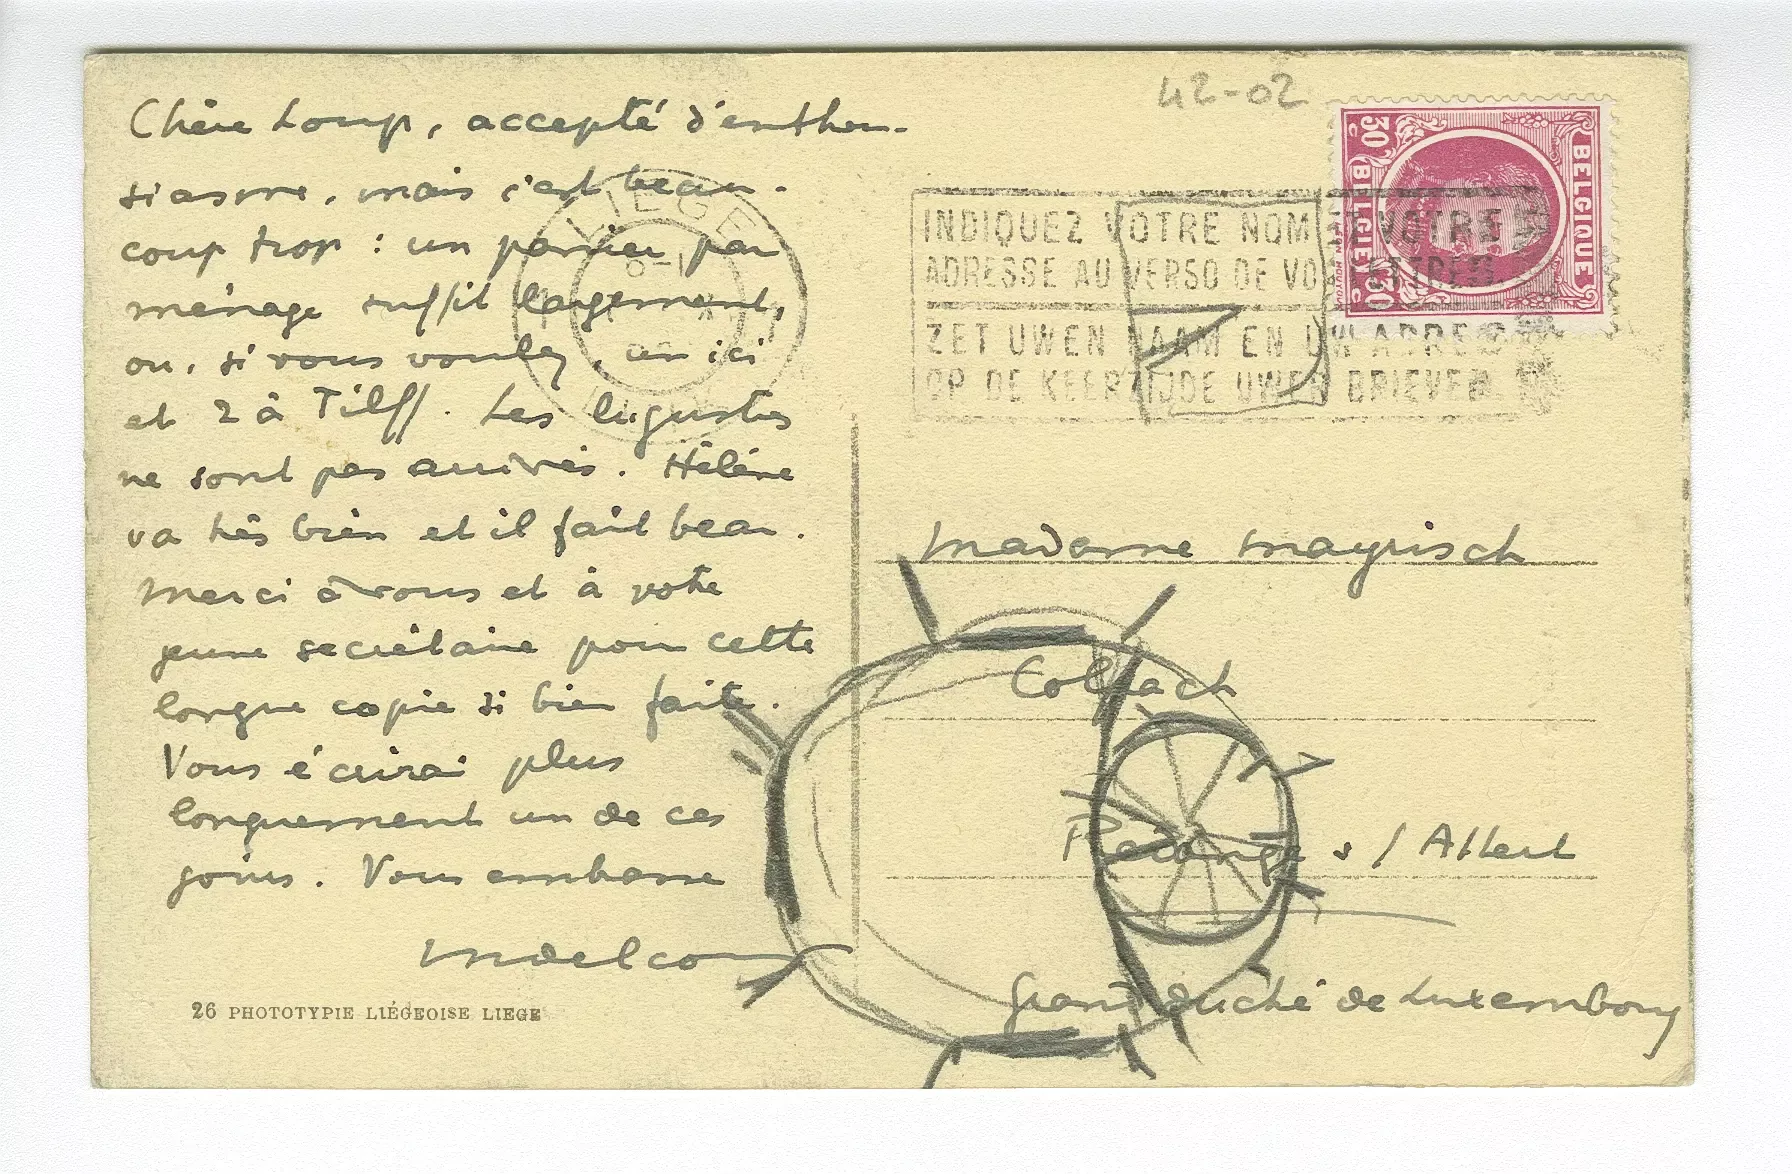 42-02
Chère Loup, accepté d'enthou-
siasme, mais c'est beau-
coup trop : un panier par
ménage suffit largement,
ou, si vous voulez, un ici
et 2 à Tilff. Les ligustres
ne sont pas arrivés. Hélène
va très bien et il fait beau.
Merci à vous et à votre
jeune secrétaire pour cette
longue copie si bien faite.
Vous écrirai plus
longuement un de ces
jours. Vous embrasse
mdelcour
26 PHOTOTYPIE LIÉGEOISE LIEGE
LIEGE
INDIQUEZ VOTRE NOM ET VOTRE
ADRESSE AU VERSO DE VOS LETTRES
ZET UWEN NAAM EN UW ADRES
OP DE KEERZIJDE UWER BRIEVEN
BELGIQUE
30
BELGIE
30
Madame Mayrisch
Colpach
Redange s/Attert
Grand duché de Luxembourg